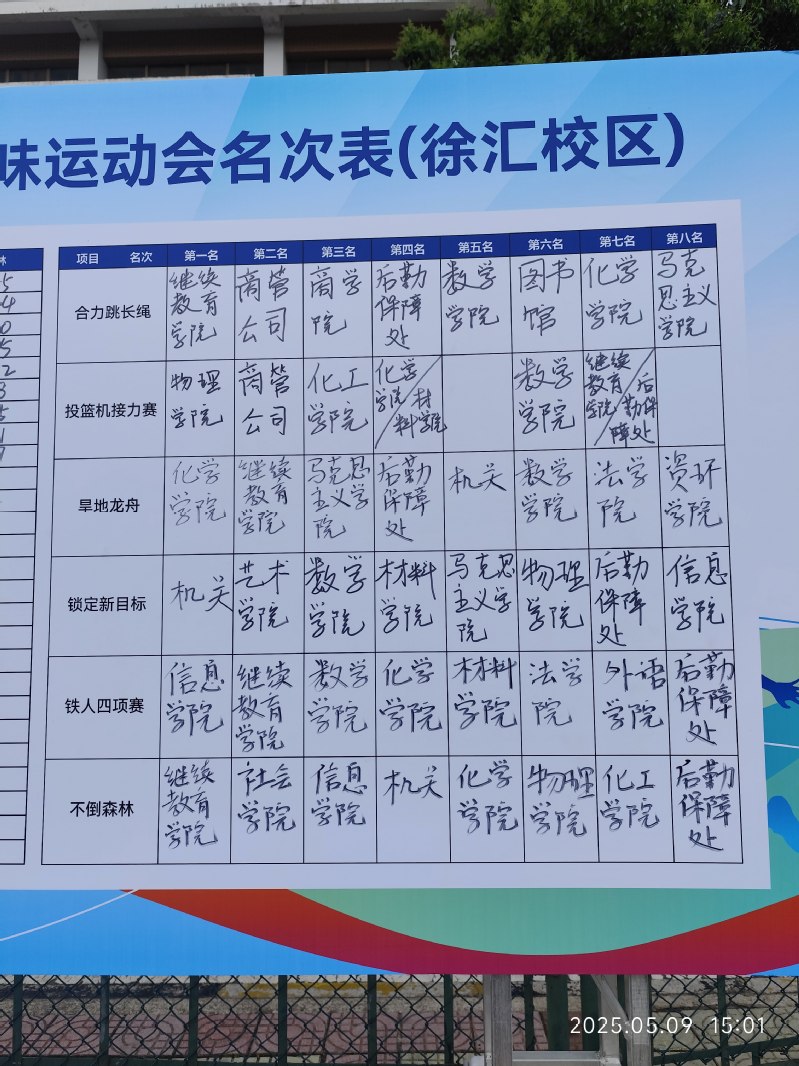 味运动会名次表(徐汇校区)
林
项目 名次 第一名 第二名 第三名 第四名 第五名 第六名 第七名 第八名
合力跳长绳 继续教育学院 商管公司 商学院 后勤保障处 数学学院 图书馆 化学学院 马克思主义学院
投篮机接力赛 物理学院 商管公司 化工学院 化学学院/材料学院 数学学院 继续教育学院/后勤保障处
旱地龙舟 化学学院 继续教育学院 马克思主义学院 后勤保障处 机关 数学学院 法学院 资环学院
锁定新目标 机关 艺术学院 数学学院 材料学院 马克思主义学院 物理学院 后勤保障处 信息学院
铁人四项赛 信息学院 继续教育学院 数学学院 化学学院 材料学院 法学院 外语学院 后勤保障处
不倒森林 继续教育学院 社会学院 信息学院 机关 化学学院 物理学院 化工学院 后勤保障处
2025.05.09 15:01